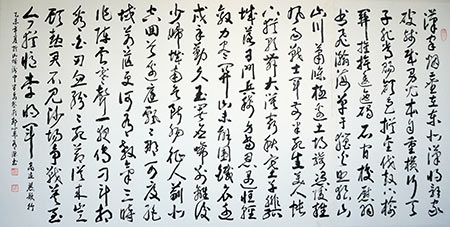 漢家煙塵在東北漢將辭家
破殘賊男兒本自重橫行天
子非常賜顏色摐金伐鼓下榆
關旌旆逶迤碣石間校尉羽
書飛瀚海單于獵火照狼山
山川蕭條極邊土胡騎憑陵雜
風雨戰士軍前半死生美人帳
下猶歌舞大漠窮秋塞草腓孤
城落日鬥兵稀身當恩遇恒輕
敵力盡關山未解圍鐵衣遠
戍辛勤久玉箸應啼別離後
少婦城南欲斷腸征人薊北
空回首邊庭飄颻那可度絕
域蒼茫更何有殺氣三時
作陣雲寒聲一夜傳刁斗相
看白刃血紛紛死節從來豈
顧勳君不見沙場爭戰苦至
今猶憶李將軍 高適燕歌行